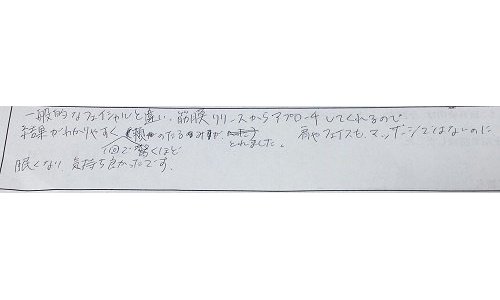 一般的なフェイシャルと違い、筋膜リリースからアプローチしてくれるので
結果がわかりやすく のたるみが とれました。 肩やフェイスも、マッサージではないのに
1回で驚くほど
眠くなり、気持ち良かったです。